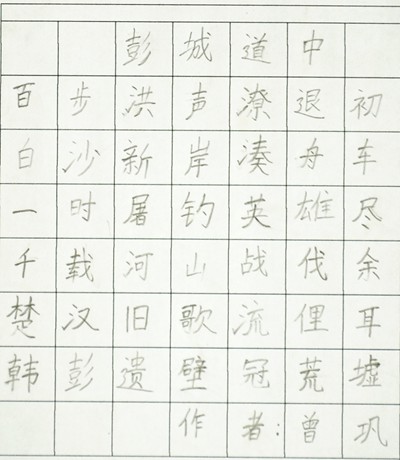 彭城道中
百步洪声潦退初
白沙新岸湊舟车
一时屠钓英雄尽
千载河山战伐余
楚汉旧歌流俚耳
韩彭遗壁冠荒墟
作者:曾巩